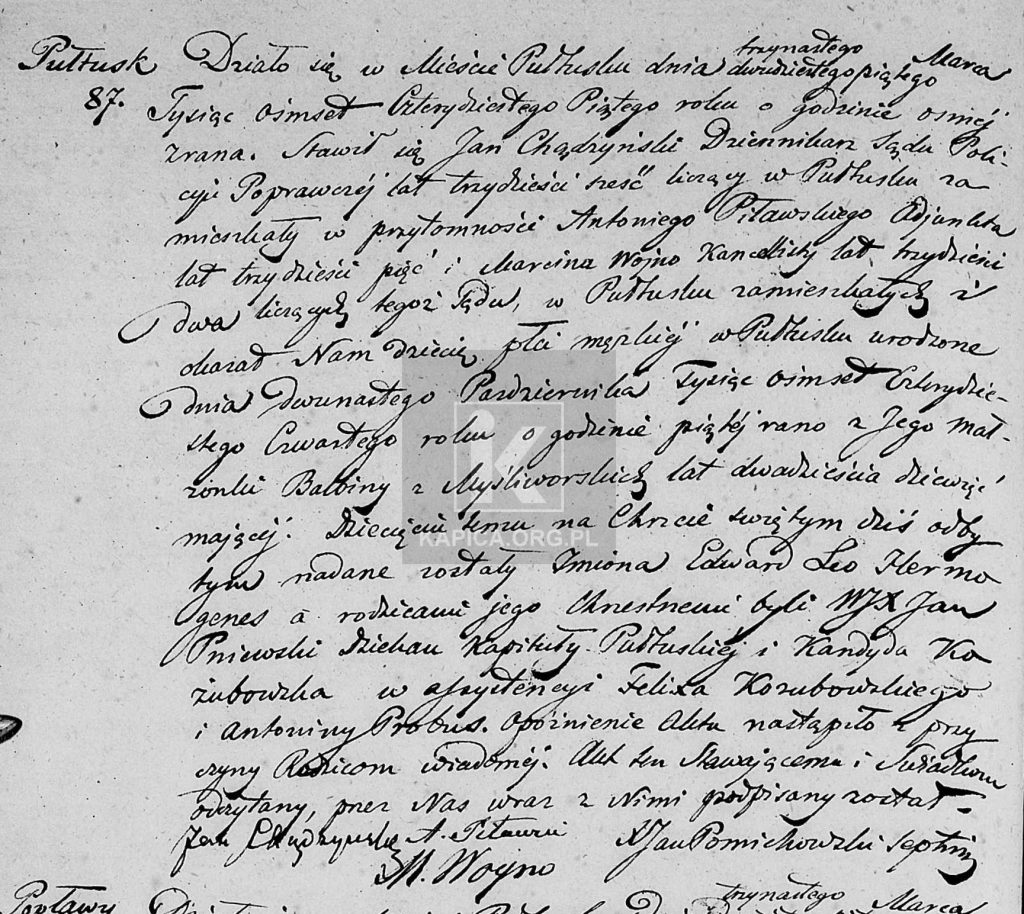 trzynastego
Pułtusk Działo się w Mieście Pułtusku dnia dwudziestego piątego Marca
87. Tysiąc ośmset Czterydziestego Piątego roku o godzinie osméj
zrana. Stawił się Jan Chądzyński Dziennikarz Sądu Poli-
cyi Poprawczéj lat trzydzieści sześć liczący w Pułtusku za
mieszkały w przytomności Antoniego Piławskiego Adjunkta
lat trzydzieści pięć i Marcina Wojno Kancellisty lat trzydzieści
dwa liczących tegoż Sądu, w Pułtusku zamieszkałych i
okazał Nam dziecię płci męzkiéj w Pułtusku urodzone
dnia dwunastego Pazdziernika Tysiąc ośmset Czterydzie-
stego Czwartego roku o godzinie piątéj rano z Jego Mał-
żonki Balbiny z Myśliworskich lat dwadzieścia dziewięć
mającéj. Dziecięciu temu na Chrzcie świętym dziś odby
KAPICA.ORG.PL
tym nadane zostały Imiona Edward Leo Hermo
genes a rodzicami jego Chrzestnemi byli WJX Jan
Pniewski Dziekan Kapituły Pułtuskiéj i Kandyda Ko
zubowska w assystencyi Felixa Kozubowskiego
i Antoniny Probus. Opóźnienie Aktu nastąpiło z przy
czyny Rodzicom wiadoméj. Akt ten Stawającemu i Świadkom
odczytany, przez Nas wraz z Nimi podpisany został -
Jan Chądzyński A. Piławski XJan Pomichowski
M. Wojno
trzynastego
Popławy Marca